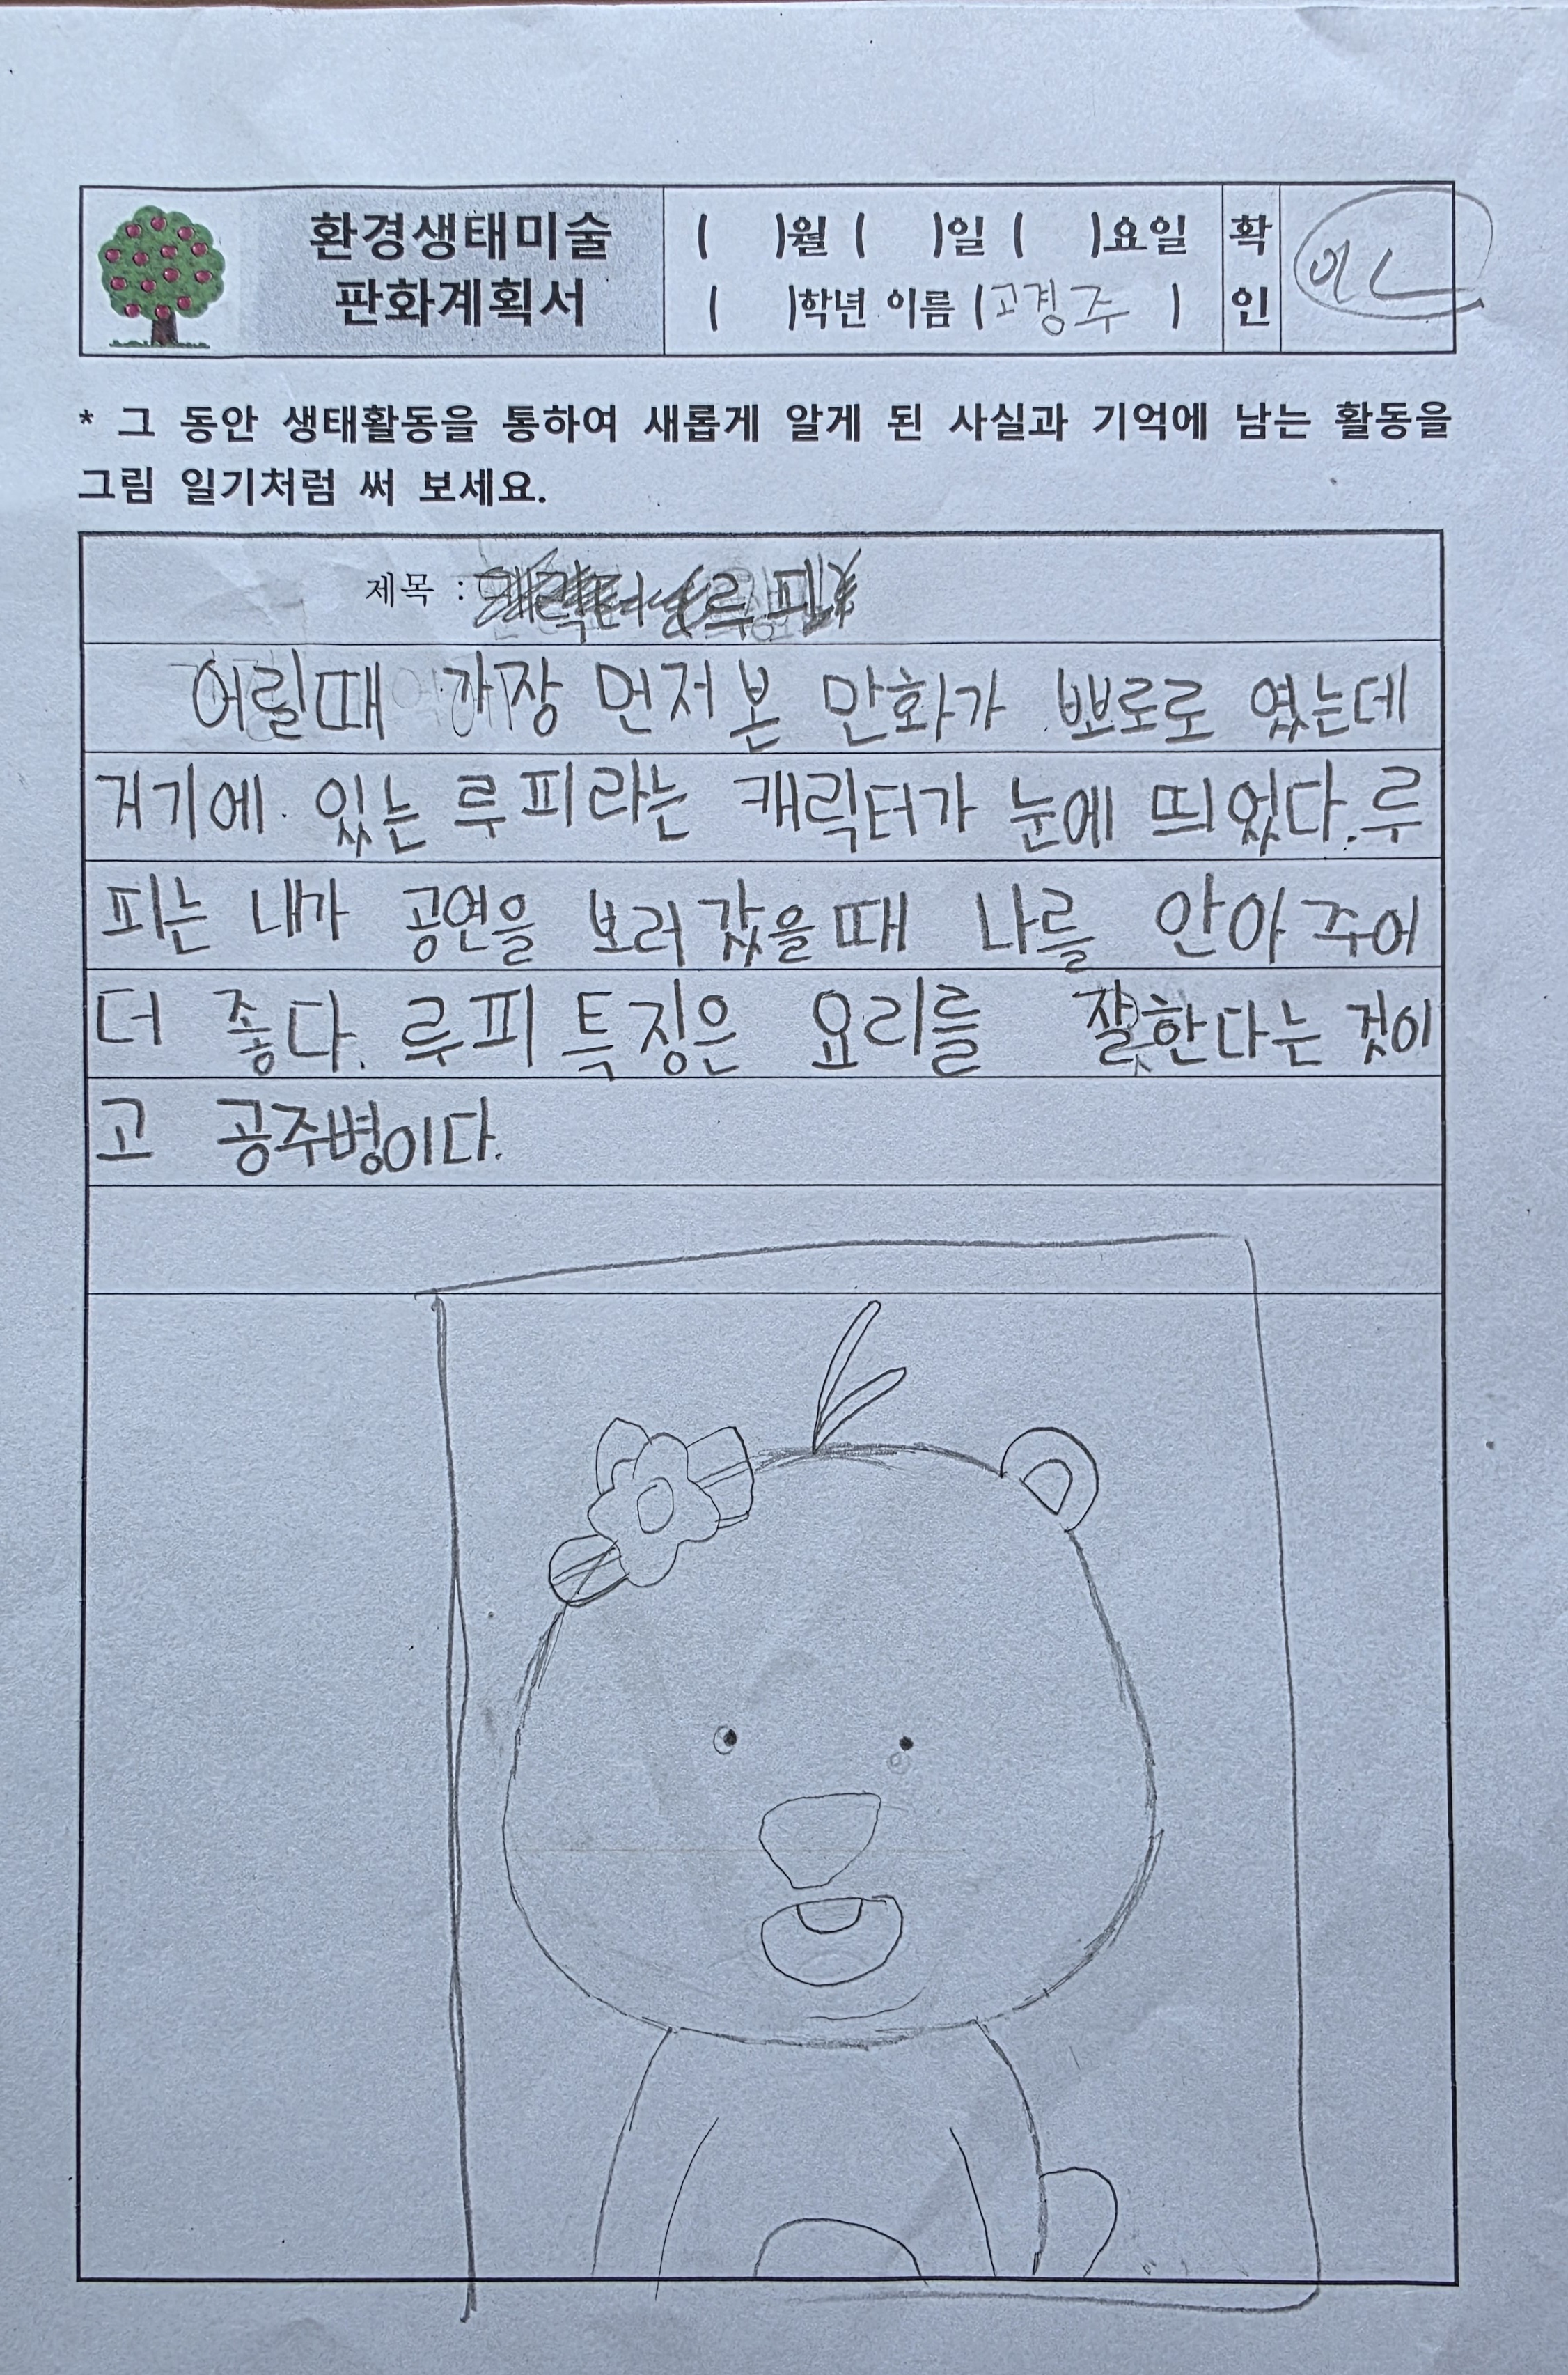 환경생태미술
판화계획서
( )월 ( )일 ( )요일
( )학년 이름 (고경주 )
확
인
* 그 동안 생태활동을 통하여 새롭게 알게 된 사실과 기억에 남는 활동을
그림 일기처럼 써 보세요.
제목 : 루피
어릴때 가장 먼저 본 만화가 뽀로로 였는데
거기에 있는 루피라는 캐릭터가 눈에 띄었다. 루
피는 내가 공연을 보러 갔을때 나를 안아 주어
더 좋다. 루피 특징은 요리를 잘한다는 것이
고 공주병이다.